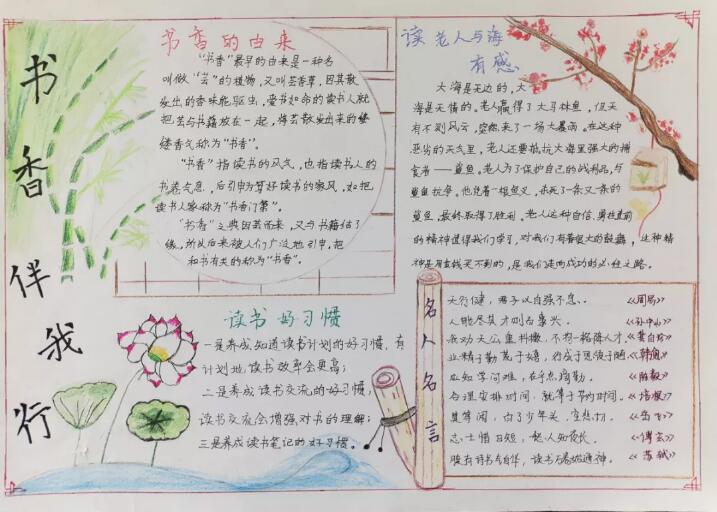 书香伴我行
书香的由来
"书香"最早的由来是一种名
叫做"芸"的植物,又叫芸香草,因其散
发出的香味能驱虫,爱书如命的读书人就
把芸与书籍放在一起,将芸散发出来的缕
缕香气称为"书香"。
"书香"指读书的风气,也指读书人的
书卷气息,后引申为算好读书的家风,如把
读书人家称为"书香门第"。
"书香"之典因芸而来,又与书籍结了
缘,所以后来被人们广泛地引申,把
和书有关的称为"书香"。
读老人与海
有感
大海是无边的,大
海是无情的。老人赢得了大马林鱼,但天
有不测风云,突然来了一场大暴雨。在这种
恶劣的天气里,老人还要抵抗大海里强大的捕
食者——鲨鱼。老人为了保护自己的战利品,与
鲨鱼抗争。他凭着一根鱼叉,杀死了一条又一条的
鲨鱼,最终取得了胜利。老人这种自信、勇往直前
的精神值得我们学习,对我们有着很大的鼓舞,这种精
神是用金钱买不到的,是我们走向成功的必经之路。
读书好习惯
一是养成知道读书计划的好习惯,有
计划地读书效率会更高;
二是养成读书交流的好习惯,
读书交流会增强对书的理解;
三是养成读书笔记的好习惯。
名人名言
天行健,君子以自强不息。《周易》
人能尽其才则百事兴。《孙中山》
我劝天公重抖擞,不拘一格降人才。《龚自珍》
业精于勤荒于嬉,行成于思毁于随《韩愈》
应知学问难,在乎点滴勤。《陈毅》
合理安排时间,就等于节约时间。《培根》
莫等闲,白了少年头,空悲切。《岳飞》
志士惜日短,愁人知夜长。《傅玄》
腹有诗书气自华,读书万卷始通神。《苏轼》